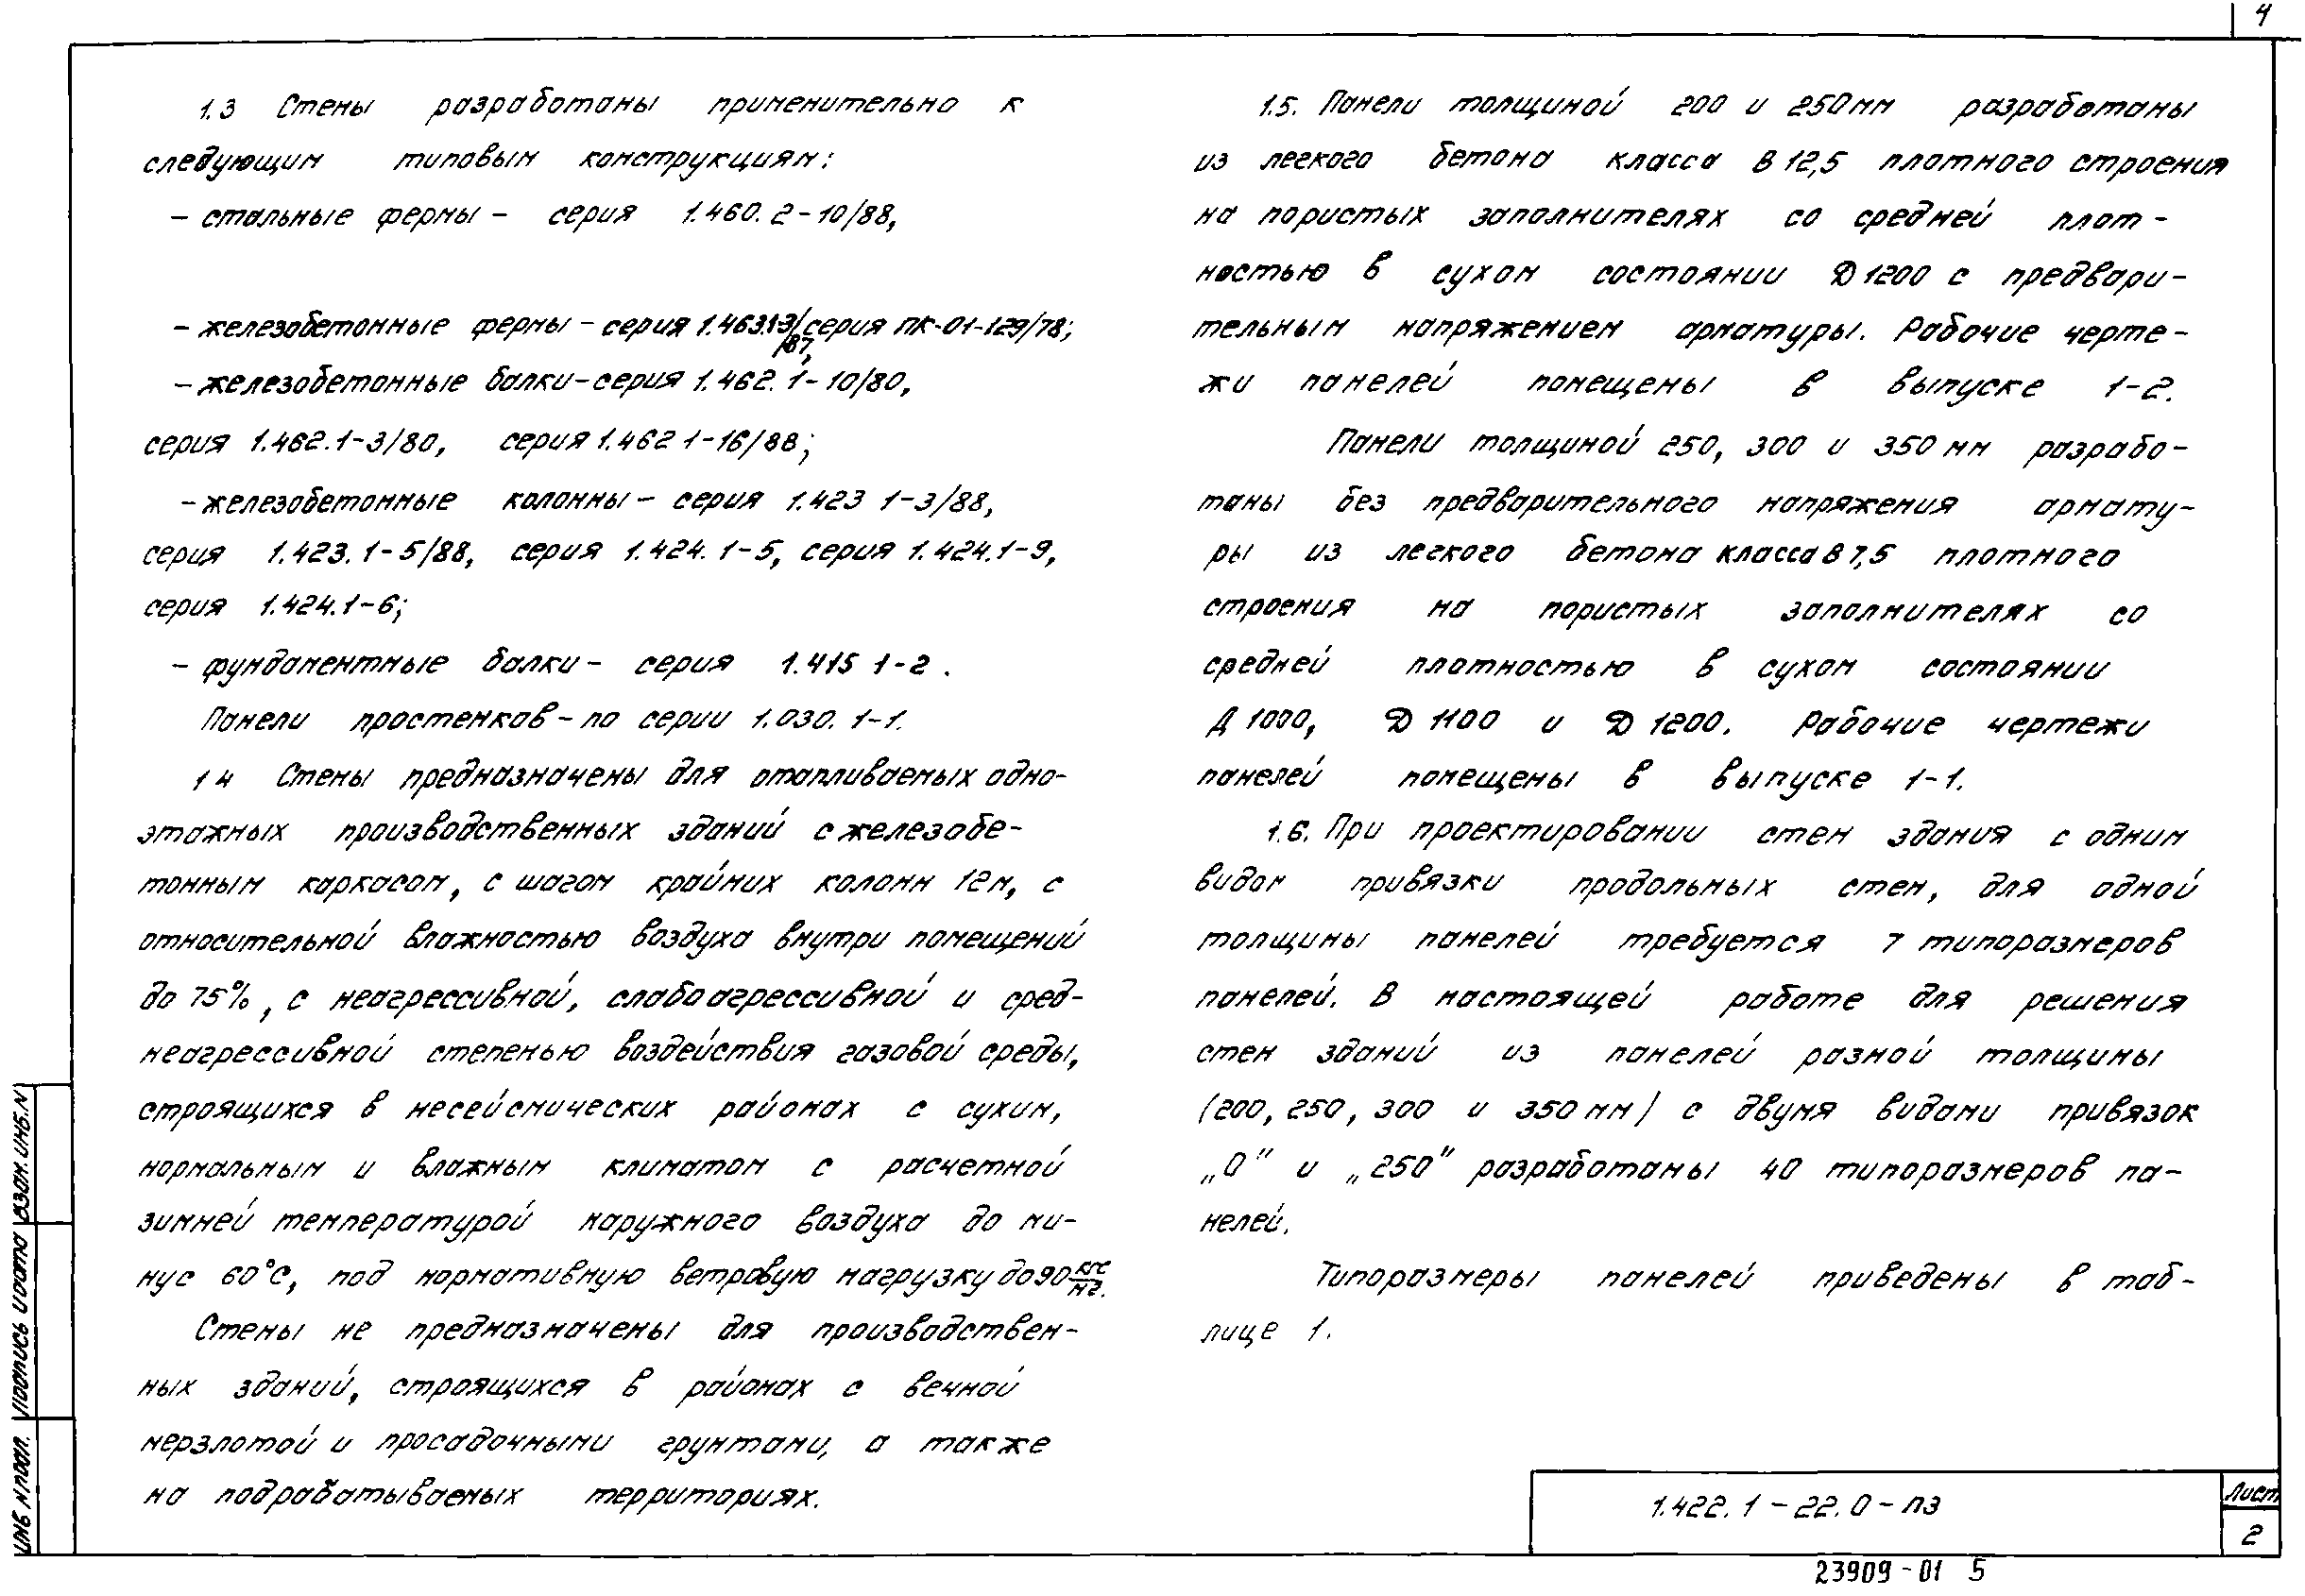 4
1.3 Стены разработаны применительно к
следующим типовым конструкциям:
- стальные фермы - серия 1.460.2-10/88,
- железобетонные фермы - серия 1.463.1-3/87, серия ПК-01-129/78;
- железобетонные балки - серия 1.462.1-10/80,
серия 1.462.1-3/80, серия 1.462 1-16/88;
- железобетонные колонны - серия 1.423 1-3/88,
серия 1.423.1-5/88, серия 1.424.1-5, серия 1.424.1-9,
серия 1.424.1-6;
- фундаментные балки - серия 1.415 1-2.
Панели простенков - по серии 1.030.1-1.
1 4 Стены предназначены для отапливаемых одно-
этажных производственных зданий с железобе-
тонным каркасом, с шагом крайних колонн 12м, с
относительной влажностью воздуха внутри помещений
до 75%, с неагрессивной, слабоагрессивной и сред-
неагрессивной степенью воздействия газовой среды,
строящихся в несейсмических районах с сухим,
нормальным и влажным климатом с расчетной
зимней температурой наружного воздуха до ми-
нус 60°С, под нормативную ветровую нагрузку до 90 кгс/м2.
Стены не предназначены для производствен-
ных зданий, строящихся в районах с вечной
мерзлотой и просадочными грунтами, а также
на подрабатываемых территориях.
1.5. Панели толщиной 200 и 250мм разработаны
из легкого бетона класса В12,5 плотного строения
на пористых заполнителях со средней плот-
ностью в сухом состоянии Д1200 с предвари-
тельным напряжением арматуры. Рабочие черте-
жи панелей помещены в выпуске 1-2.
Панели толщиной 250, 300 и 350 мм разрабо-
таны без предварительного напряжения армату-
ры из легкого бетона класса В 7,5 плотного
строения на пористых заполнителях со
средней плотностью в сухом состоянии
Д 1000, Д 1100 и Д 1200. Рабочие чертежи
панелей помещены в выпуске 1-1.
1.6. При проектировании стен здания с одним
видом привязки продольных стен, для одной
толщины панелей требуется 7 типоразмеров
панелей. В настоящей работе для решения
стен зданий из панелей разной толщины
(200, 250, 300 и 350 мм) с двумя видами привязок
„0" и „250" разработаны 40 типоразмеров па-
нелей.
Типоразмеры панелей приведены в таб-
лице 1.
Инв N подл. Подпись и дата Взам. инв. N
1.422.1-22.0-ПЗ
Лист
2
23909-01 5